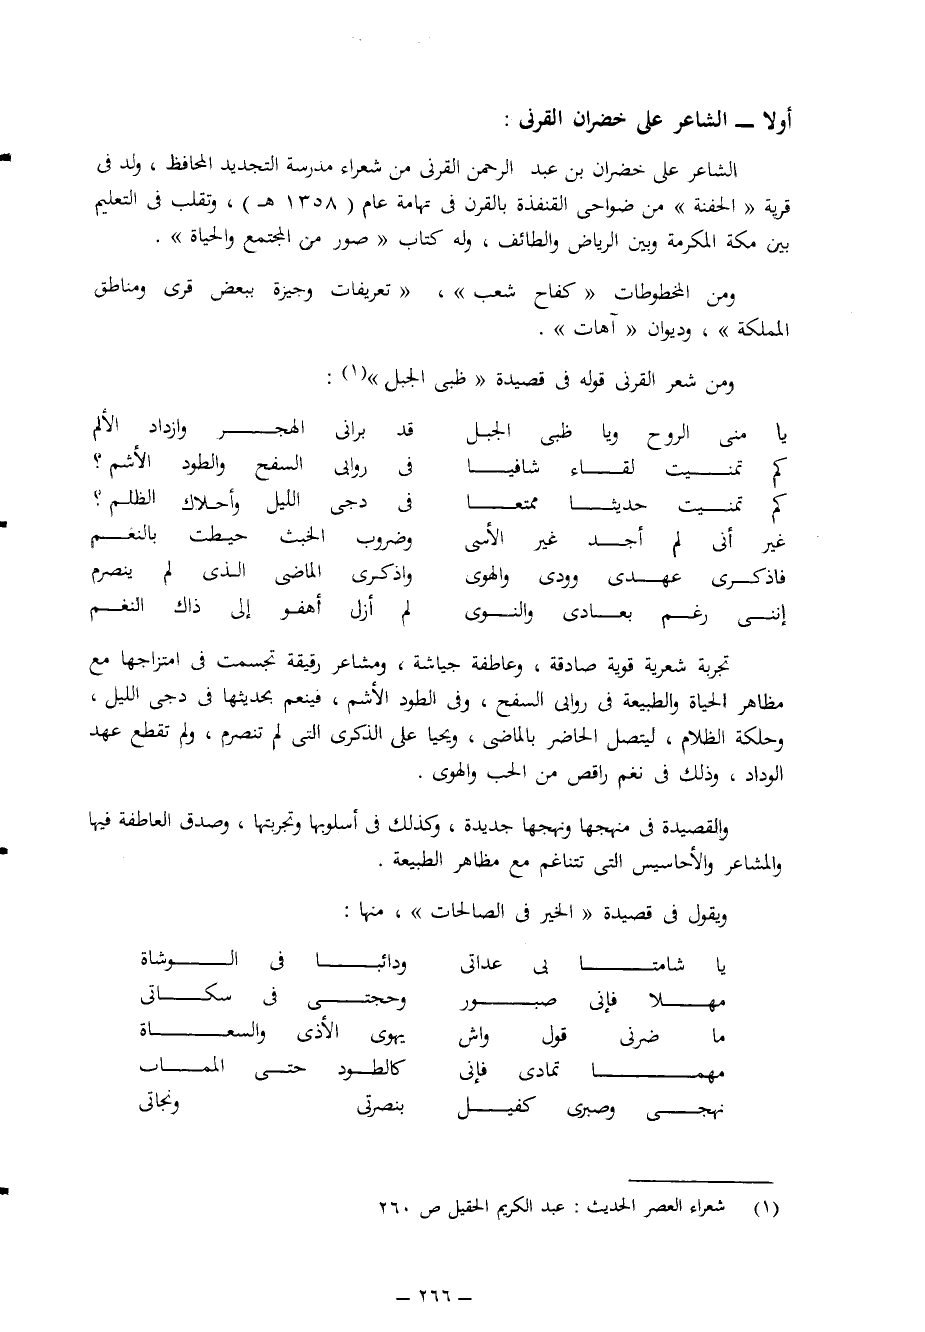 أولا ــ الشاعر على خضران القرنى :
الشاعر على خضران بن عبد الرحمن القرنى من شعراء مدرسة التجديد المحافظ ، ولد فى
قرية « الحفنة » من ضواحى القنفذة بالقرن فى تهامة عام ( ١٣٥٨ هـ ) ، وتقلب فى التعليم
بين مكة المكرمة وبين الرياض والطائف ، وله كتاب « صور من المجتمع والحياة » .
ومن المخطوطات « كفاح شعب » ، « تعريفات وجيزة ببعض قرى ومناطق
المملكة » ، وديوان « آهات » .
ومن شعر القرنى قوله فى قصيدة « ظبى الجبل »(١) :
يا منى الروح ويا ظبى الجبل قد برانى الهجر وازداد الألم
كم تمنيت لقاء شافيا فى روابى السفح والطود الأشم ؟
كم تمنيت حديثا ممتعا فى دجى الليل وأحلاك الظلم ؟
غير أنى لم أجد غير الأسى وضروب الخبث حيطت بالنغم
فاذكرى عهدى وودى والهوى واذكرى الماضى الذى لم ينصرم
إننى رغم بعادى والنوى لم أزل أهفو إلى ذاك النغم
تجربة شعرية قوية صادقة ، وعاطفة جياشة ، ومشاعر رقيقة تجسمت فى امتزاجها مع
مظاهر الحياة والطبيعة فى روابى السفح ، وفى الطود الأشم ، فينعم بحديثها فى دجى الليل ،
وحلكة الظلام ، ليتصل الحاضر بالماضى ، ويحيا على الذكرى التى لم تنصرم ، ولم تقطع عهد
الوداد ، وذلك فى نغم راقص من الحب والهوى .
والقصيدة فى منهجها ونهجها جديدة ، وكذلك فى أسلوبها وتجربتها ، وصدق العاطفة فيها
والمشاعر والأحاسيس التى تتناغم مع مظاهر الطبيعة .
ويقول فى قصيدة « الخير فى الصالحات » ، منها :
يا شامتا بى عداتى ودائبا فى الوشاة
مهلا فإنى صبور وحجتى فى سكاتى
ما ضرنى قول واش يهوى الأذى والسعاة
مهما تمادى فإنى كالطود حتى الممات
نهجى وصبرى كفيل بنصرتى ونجاتى
(١) شعراء العصر الحديث : عبد الكريم الحقيل ص ٢٦٠
ــ ٢٦٦ ــ